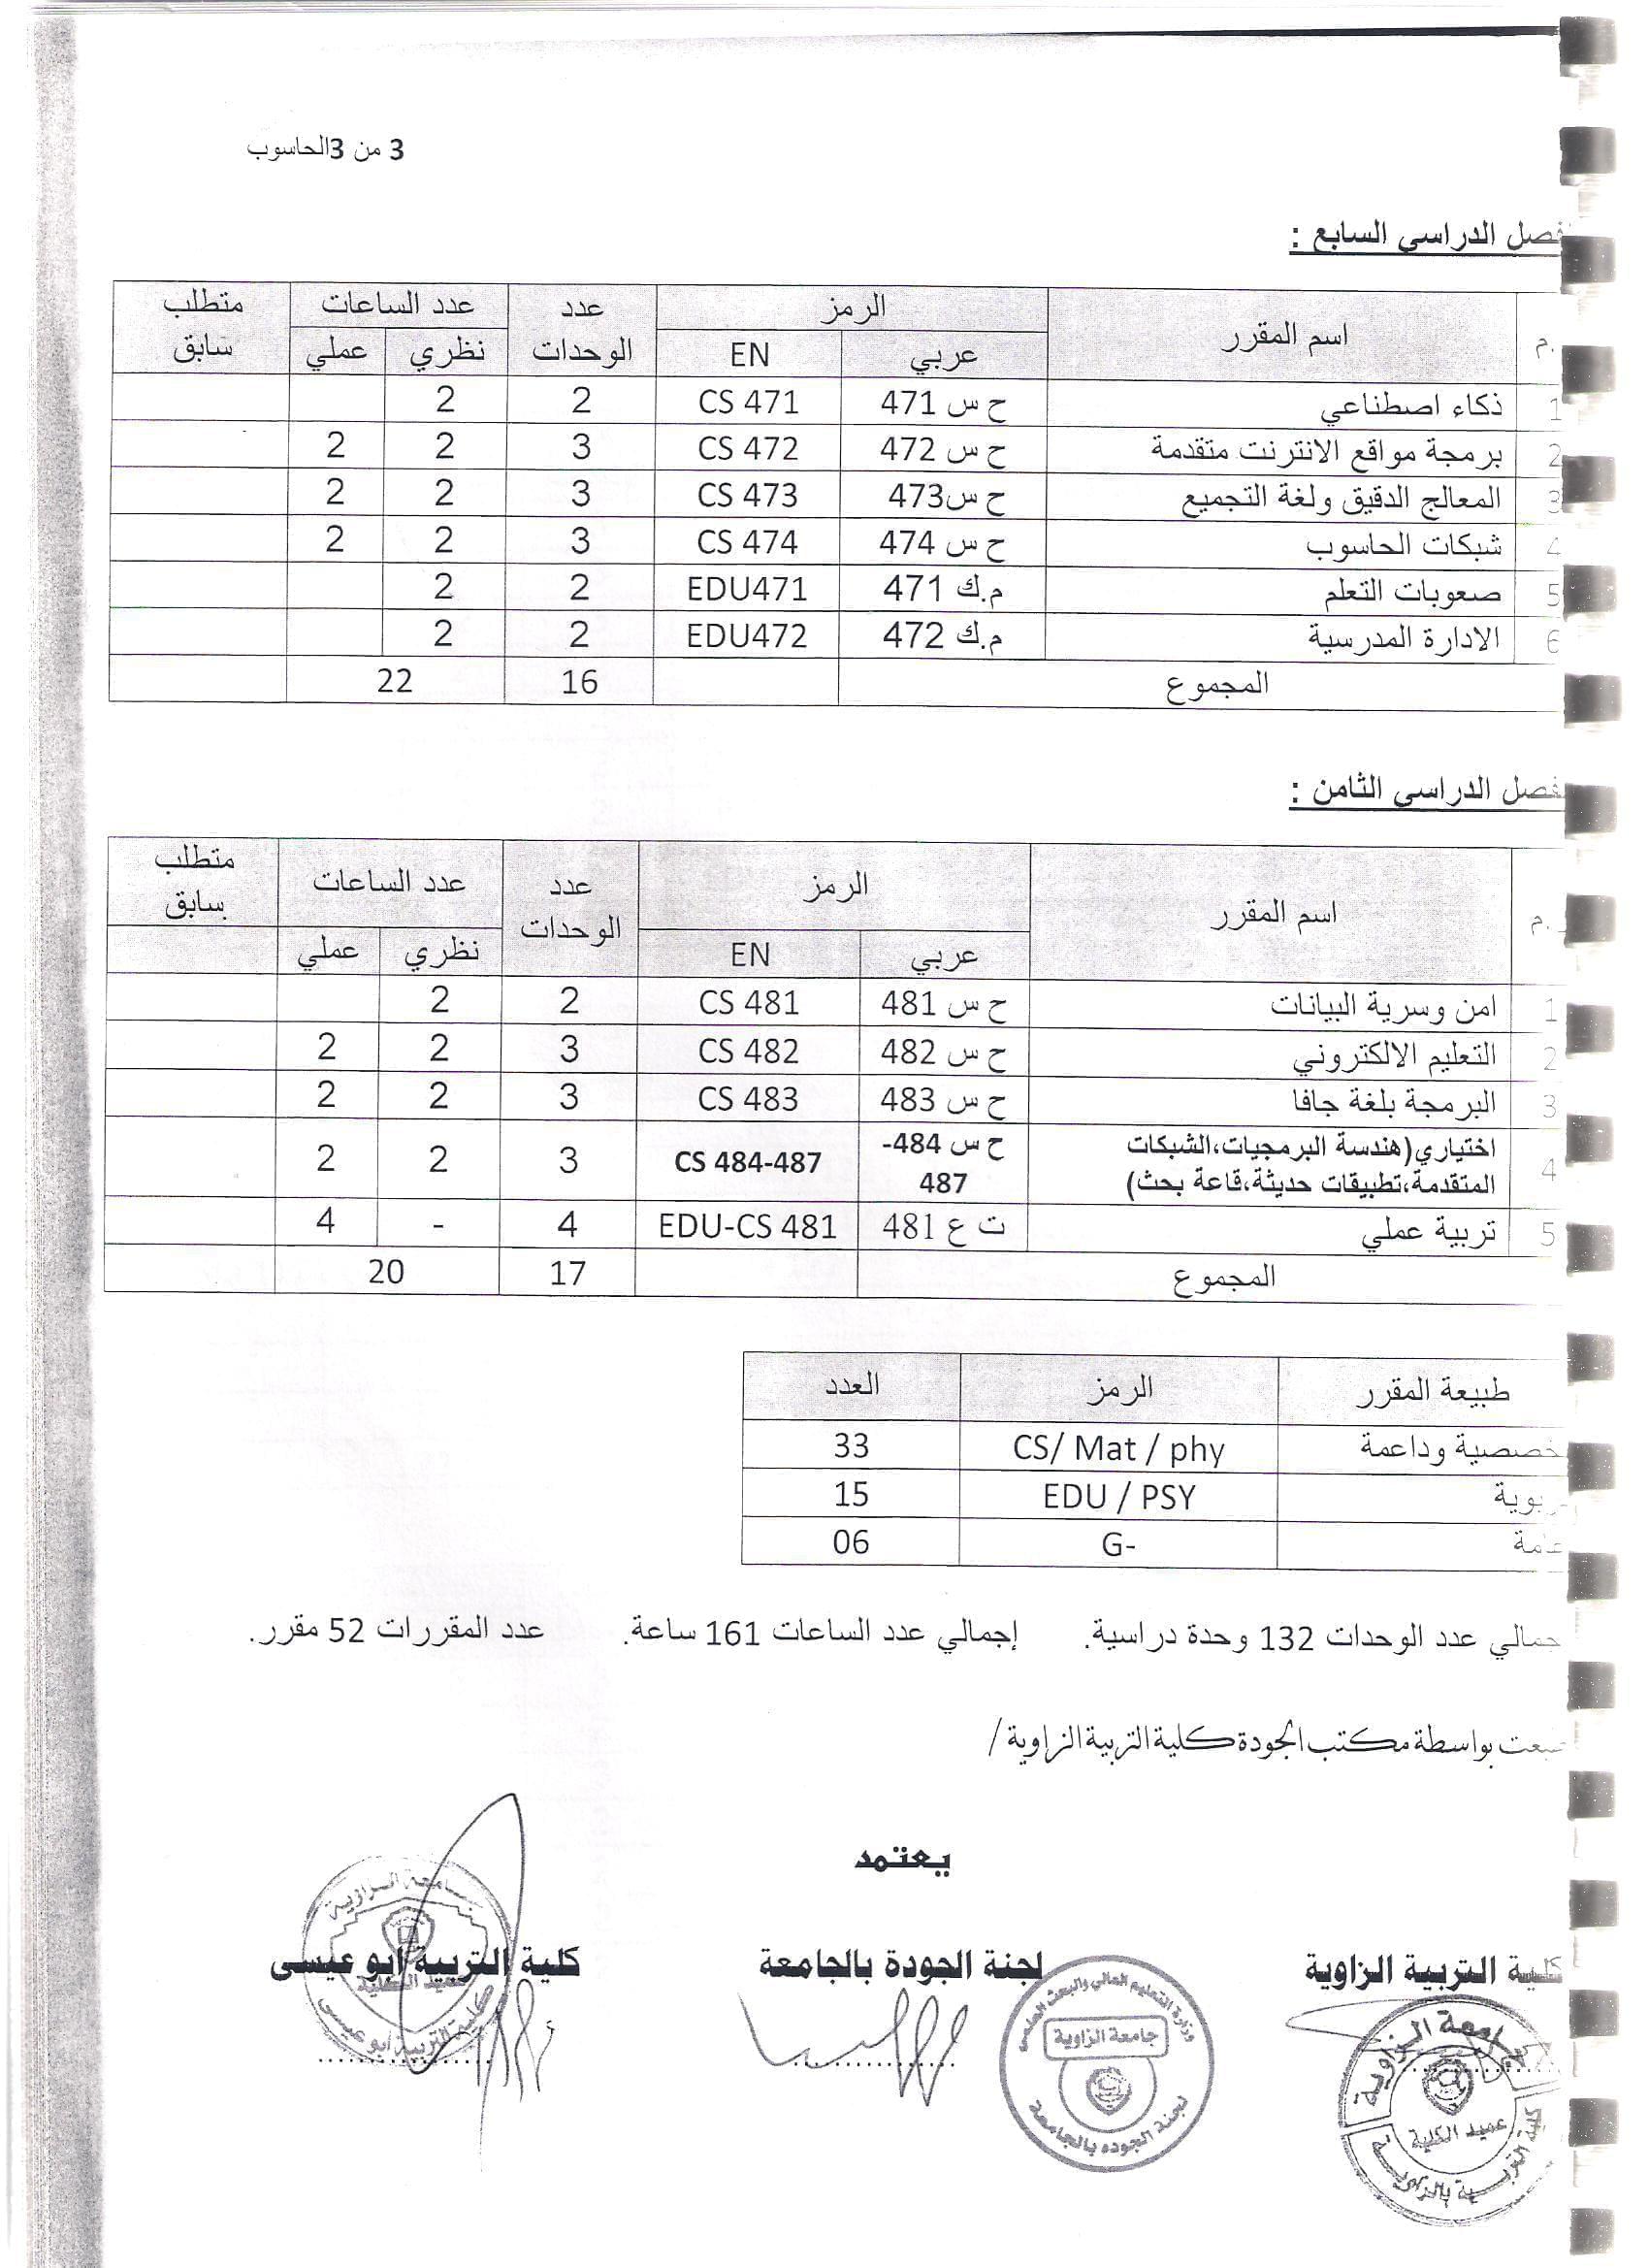 3 من 3الحاسوب
فصل الدراسي السابع :
م. اسم المقرر الرمز عدد الوحدات عدد الساعات متطلب سابق
عربي EN نظري عملي
1 ذكاء اصطناعي ح س 471 CS 471 2 2
2 برمجة مواقع الانترنت متقدمة ح س 472 CS 472 3 2 2
3 المعالج الدقيق ولغة التجميع ح س473 CS 473 3 2 2
4 شبكات الحاسوب ح س 474 CS 474 3 2 2
5 صعوبات التعلم م.ك 471 EDU471 2 2
6 الادارة المدرسية م.ك 472 EDU472 2 2
المجموع 16 22
فصل الدراسي الثامن :
م. اسم المقرر الرمز عدد الوحدات عدد الساعات متطلب سابق
عربي EN نظري عملي
1 امن وسرية البيانات ح س 481 CS 481 2 2
2 التعليم الالكتروني ح س 482 CS 482 3 2 2
3 البرمجة بلغة جافا ح س 483 CS 483 3 2 2
4 اختياري(هندسة البرمجيات،الشبكات المتقدمة،تطبيقات حديثة،قاعة بحث) ح س 484-487 CS 484-487 3 2 2
5 تربية عملي ت ع 481 EDU-CS 481 4 - 4
المجموع 17 20
طبيعة المقرر الرمز العدد
خصصية وداعمة CS/ Mat / phy 33
ربوية EDU / PSY 15
عامة G- 06
جمالي عدد الوحدات 132 وحدة دراسية. إجمالي عدد الساعات 161 ساعة. عدد المقررات 52 مقرر.
بواسطة مكتب الجودة كلية التربية الزاوية /
يعتمد
كلية التربية الزاوية لجنة الجودة بالجامعة كلية التربية أبو عيسى
جامعة الزاوية
عميد الكلية
كلية التربية بالزاوية
وزارة التعليم العالي والبحث العلمي
جامعة الزاوية
لجنة الجوده بالجامعة
جامعة الزاوية
عميد الكلية
كلية التربية أبو عيسى